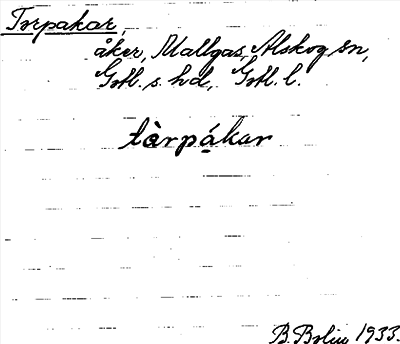 Torpakar,
åker, Mallgas, Alskog sn,
Gotl. s. hd, Gotl. l.
tàrpá̱kar
B. Bolin 1933.